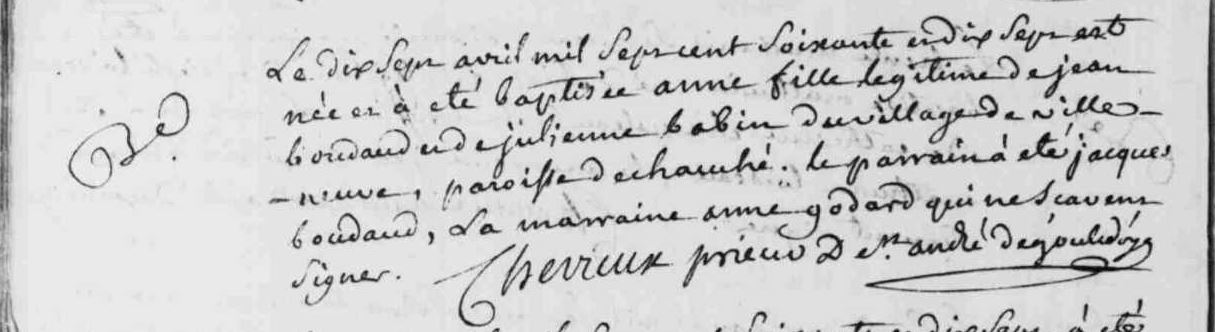 Le dix sept avril mil sept cent soixante et dix sept est
née et à eté baptisée anne fille legitime de jean
Be.
boudaud et de julienne babin du village de ville-
-neuve, paroisse de chauché. le parrain à eté jacques
boudaud, La marraine anne godard qui ne scavent
signer. Cherreux prieur De st. andré de gouledoy